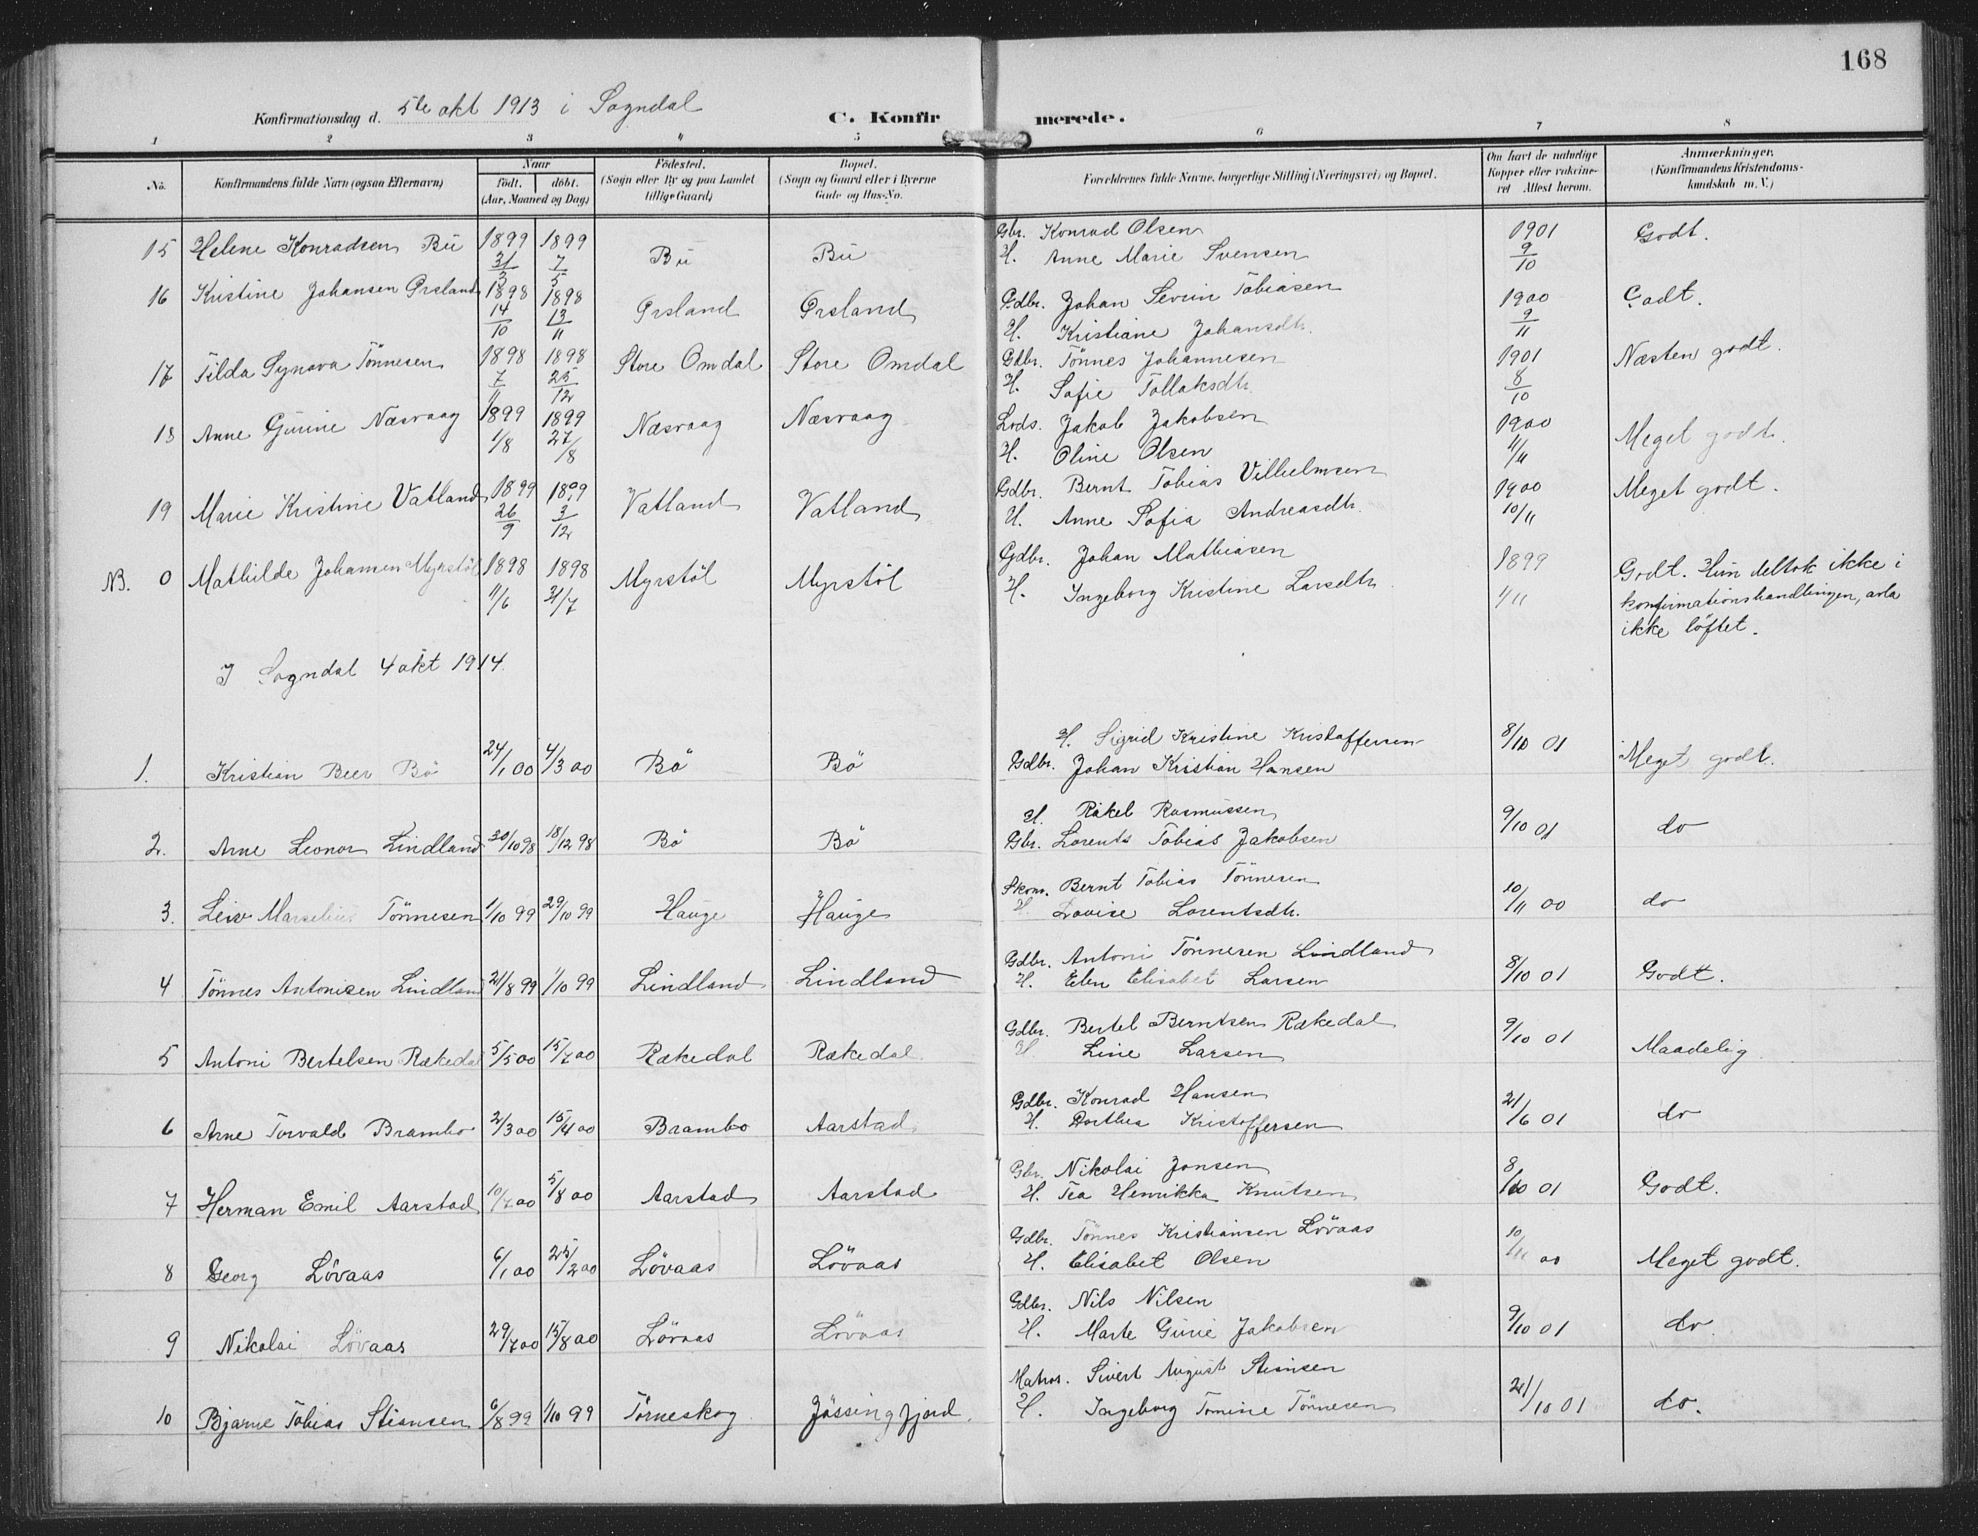 168
Konfirmationsdag d. 5te okt 1913 i Sogndal
C. Konfirmerede.
1 2 3 4 5 6 7 8
No. Konfirmandens fulde Navn (ogsaa Efternavn) Naar født. døbt. (Aar, Maaned og Dag) Fødested. (Sogn eller By og paa Landet tillige Gaard) Bopæl. (Sogn og Gaard eller i Byerne Gade og Hus-No. Forældrenes fulde Navne, borgerlige Stilling (Næringsvei) og Bopæl. Om havt de naturlige Kopper eller vakcineret. Attest herom. Anmærkninger. (Konfirmandens Kristendomskundskab m. V.)
15 Helene Konradsen Bu 1899 31/3 1899 7/5 Bu Bu Gbr. Konrad Olsen 1901 9/10 Godt.
H. Anne Marie Svensen
16 Kristine Johansen Orsland 1898 14/10 1898 13/11 Orsland Orsland Gdbr. Johan Severin Tobiasen 1900 9/11 Godt.
H. Kristiane Johansdtr.
17 Tilda Synova Tönnesen 1898 7/11 1898 25/12 Store Omdal Store Omdal Gdbr. Tönnes Johannesen 1901 8/10 Næsten godt.
H. Sofie Tollaksdtr.
18 Anne Gurine Næsvaag 1899 1/8 1899 27/8 Næsvaag Næsvaag Lods. Jakob Jakobsen 1900 Meget godt.
H. Oline Olsen
19 Marie Kristine Vatland 1899 26/9 1899 3/12 Vatland Vatland Gdbr. Bernt Tobias Vilhelmsen 1900 10/11 Meget godt.
H. Anne Sofia Andreasdtr.
NB. 0 Mathilde Johansen Myrstöl 1898 11/6 1898 31/7 Myrstöl Myrstöl Gdbr. Johan Mathiasen 1899 Godt. Hun deltok ikke i
H. Ingeborg Kristine Larsdtr. konfirmationshandlingen, avla
ikke löftet.
I Sogndal 4 okt 1914.
H. Sigrid Kristine Kristoffersen
1. Kristian Beer Bö 24/1 00 4/3 00 Bö Bö Gdbr. Johan Kristian Hansen 8/10 01 Meget godt.
H. Rakel Rasmussen
2. Arne Leonor Lindland 30/10 98 18/12 98 Bö Bö Gbr. Lorents Tobias Jakobsen 9/10 01 do
3. Leiv Marselius Tönnesen 1/10 99 29/10 99 Hauge Hauge Skom. Bernt Tobias Tönnesen 10/11 00 do
H. Lovise Lorentsdtr.
4 Tönnes Antonisen Lindland 21/8 99 1/10 99 Lindland Lindland Gdbr. Antoni Tönnesen Lindland 8/10 01 Godt.
H. Elen Elisabet Larsen
5 Antoni Bertelsen Rækedal 5/5 00 15/7 00 Rækedal Rækedal. Gdbr. Bertel Berntsen Rækedal 9/10 01 Maadelig
H Line Larsen
6 Arne Torvald Brambo 2/3 00 15/4 00 Brambo Aarstad Gdbr. Konrad Hansen 21/6 01 do
H. Dorthea Kristoffersen
7 Herman Emil Aarstad 10/7 00 5/8 00 Aarstad Aarstad Gbr. Nikolai Jonsen 8/10 01 Godt.
H. Tea Henrikka Knutsen
8 Georg Lövaas 6/1 00 25/2 00 Lövaas Lövaas Gdbr. Tönnes Kristiansen Lövaas 10/11 00 Meget godt.
H. Elisabet Olsen
9 Nikolai Lövaas 29/7 00 15/8 00 Lövaas Lövaas Gdbr. Nils Nilsen 9/10 01 do.
H. Marte Gurie Jakobsen
10 Bjarne Tobias Stiansen 6/8 99 1/10 99 Törneskog Jössingfjord. Matros. Sivert August Stiansen 21/10 01 do.
H. Ingeborg Tomine Tönnesen